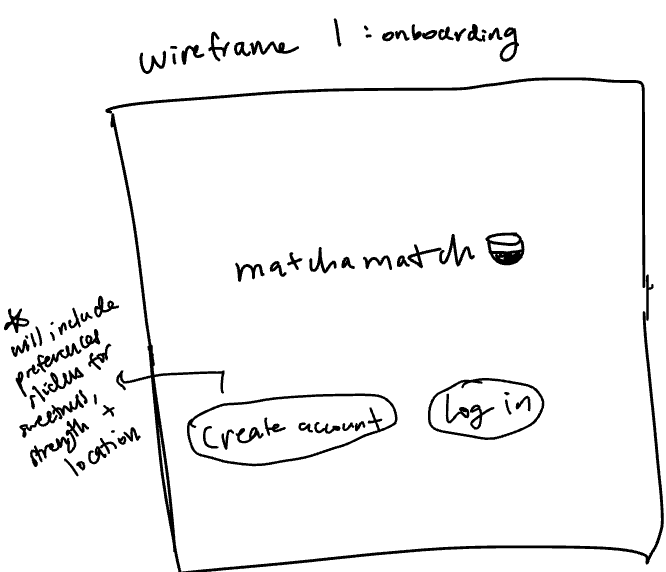 wireframe 1 : onboarding
matchamatch
* will include
preferences
sliders for
sweetness,
strength +
location
Create account
Log in